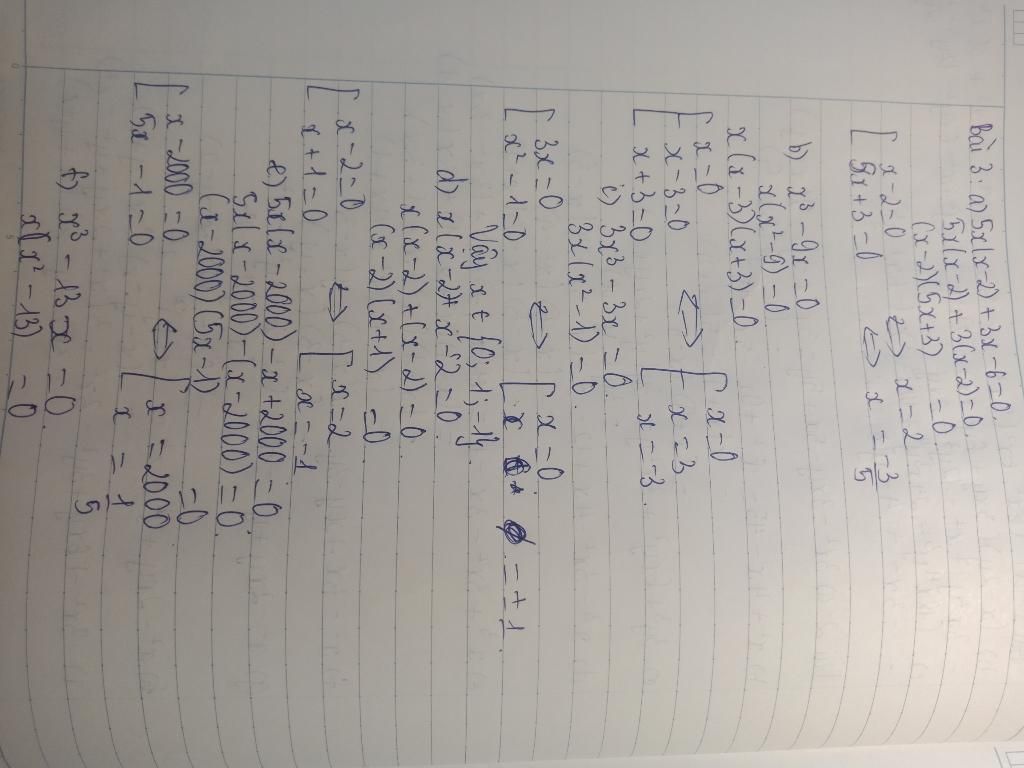 Bài 3: a) 5x(x-2) + 3x - 6 = 0
5x(x-2) + 3(x-2) = 0
(x-2)(5x+3) = 0
[ x-2=0 ⇔ x = 2
5x+3=0 ⇔ x = -3/5
b) x³ - 9x = 0
x(x²-9) = 0
x(x-3)(x+3) = 0
[ x=0 [ x=0
x-3=0 ⇔ x=3
x+3=0 x=-3
c) 3x³ - 3x = 0
3x(x²-1) = 0
[ 3x=0 ⇔ [ x=0
x²-1=0 x = ±1
Vậy x ∈ {0; 1; -1}
d) x(x-2) + x-2 = 0
x(x-2) + (x-2) = 0
(x-2)(x+1) = 0
[ x-2=0 ⇔ [ x=2
x+1=0 x=-1
e) 5x(x-2000) - x + 2000 = 0
5x(x-2000) - (x-2000) = 0
(x-2000)(5x-1) = 0
[ x-2000=0 ⇔ [ x = 2000
5x-1=0 x = 1/5
f) x³ - 13x = 0
x(x²-13) = 0